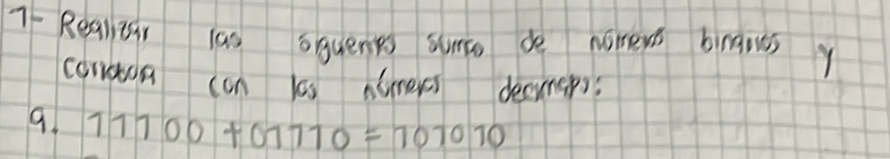 1- Realizar las siguentes sumas de números binarios y
con los números decimales:
a. 11100 + 01110 = 101010